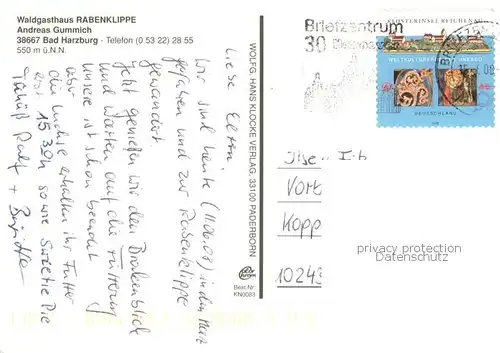 Waldgasthaus RABENKLIPPE
Andreas Gummich
38667 Bad Harzburg - Telefon (0 53 22) 28 55
550 m ü.N.N.
Liebe Eltern!
Wir sind heute (11.06.08) in den Harz
gefahren und zur Rabenklippe
gewandert.
Jetzt genießen wir den Brockenblick
und warten auf die Fütterung
unsere ist schon beendet
aber
die Luchse erhalten ihr Futter
erst 15.30h sowie Sweetie Pie
Ralf + Brigitte
WOLFG. HANS KLOCKE VERLAG, 33100 PADERBORN
Best.Nr.
KN0083
Briefzentrum
30
KLOSTERINSEL REICHENAU
WELTKULTURERBE DER UNESCO
DEUTSCHLAND
Vort
Kopp
privacy protection
Datenschutz